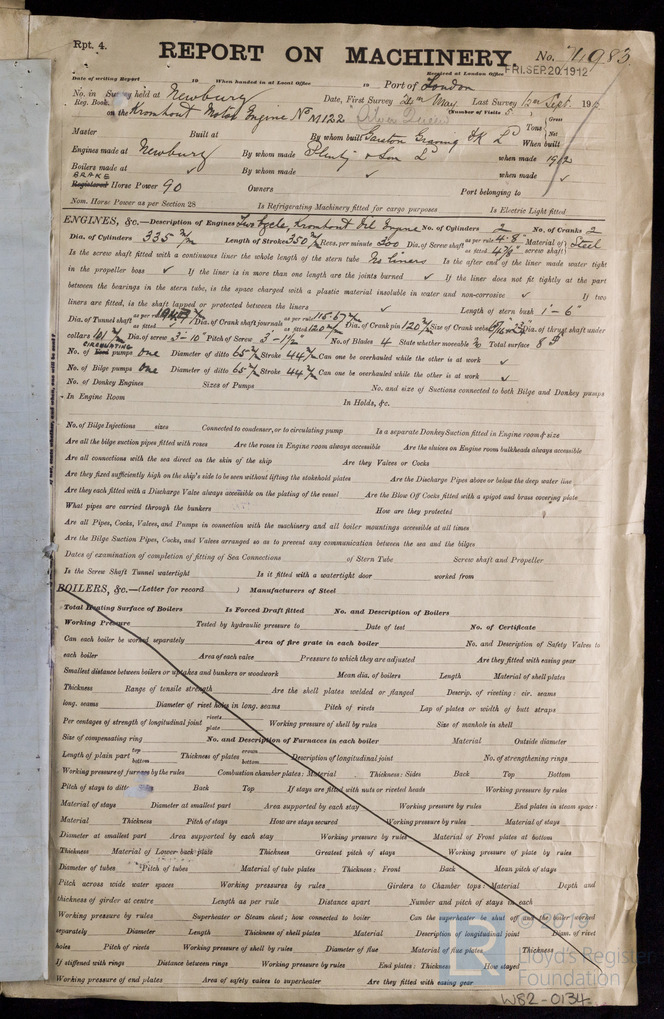 Rpt. 4.
REPORT ON MACHINERY. No. 74983
Date of writing Report 19 When handed in at Local Office 19 Received at London Office FRI. SEP. 20. 1912
Port of London
No. in Survey held at Newbury Date, First Survey 24th May Last Survey 12th Sept 191
Reg. Book. (Number of Visits 5)
on the Kromhout Motor Engine No M122
Tons Gross Net
Master Built at By whom built Ld When built
Engines made at Newbury By whom made Plenty & Son Ld when made 1912
Boilers made at ✓ By whom made ✓ when made ✓
BRAKE
Registered Horse Power 90 Owners Port belonging to
Nom. Horse Power as per Section 28 Is Refrigerating Machinery fitted for cargo purposes Is Electric Light fitted
ENGINES, &c.—Description of Engines Two cycle, Kromhout Oil Engine No. of Cylinders 2 No. of Cranks 2
Dia. of Cylinders 335 m/m Length of Stroke 350 m/m Revs. per minute 300 Dia. of Screw shaft as per rule 4.8" as fitted 4 7/8" Material of screw shaft Steel
Is the screw shaft fitted with a continuous liner the whole length of the stern tube No liners Is the after end of the liner made water tight
in the propeller boss ✓ If the liner is in more than one length are the joints burned ✓ If the liner does not fit tightly at the part
between the bearings in the stern tube, is the space charged with a plastic material insoluble in water and non-corrosive ✓ If two
liners are fitted, is the shaft lapped or protected between the liners ✓ Length of stern bush 1'-6"
Dia. of Tunnel shaft as per rule as fitted Dia. of Crank shaft journals as per rule 115.67 m/m as fitted 120 m/m Dia. of Crank pin 120 m/m Size of Crank webs Dia. of thrust shaft under
collars 101 m/m Dia. of screw 3'-10" Pitch of Screw 3'-1 1/2" No. of Blades 4 State whether moveable No Total surface 8
CIRCULATING
No. of Feed pumps One Diameter of ditto 65 m/m Stroke 44 m/m Can one be overhauled while the other is at work ✓
No. of Bilge pumps One Diameter of ditto 65 m/m Stroke 44 m/m Can one be overhauled while the other is at work ✓
No. of Donkey Engines Sizes of Pumps No. and size of Suctions connected to both Bilge and Donkey pumps
In Engine Room In Holds, &c.
No. of Bilge Injections sizes Connected to condenser, or to circulating pump Is a separate Donkey Suction fitted in Engine room & size
Are all the bilge suction pipes fitted with roses Are the roses in Engine room always accessible Are the sluices on Engine room bulkheads always accessible
Are all connections with the sea direct on the skin of the ship Are they Valves or Cocks
Are they fixed sufficiently high on the ship's side to be seen without lifting the stokehold plates Are the Discharge Pipes above or below the deep water line
Are they each fitted with a Discharge Valve always accessible on the plating of the vessel Are the Blow Off Cocks fitted with a spigot and brass covering plate
What pipes are carried through the bunkers How are they protected
Are all Pipes, Cocks, Valves, and Pumps in connection with the machinery and all boiler mountings accessible at all times
Are the Bilge Suction Pipes, Cocks, and Valves arranged so as to prevent any communication between the sea and the bilges
Dates of examination of completion of fitting of Sea Connections of Stern Tube Screw shaft and Propeller
Is the Screw Shaft Tunnel watertight Is it fitted with a watertight door worked from
BOILERS, &c.—(Letter for record ) Manufacturers of Steel
Total Heating Surface of Boilers Is Forced Draft fitted No. and Description of Boilers
Working Pressure Tested by hydraulic pressure to Date of test No. of Certificate
Can each boiler be worked separately Area of fire grate in each boiler No. and Description of Safety Valves to
each boiler Area of each valve Pressure to which they are adjusted Are they fitted with easing gear
Smallest distance between boilers or uptakes and bunkers or woodwork Mean dia. of boilers Length Material of shell plates
Thickness Range of tensile strength Are the shell plates welded or flanged Descrip. of riveting: cir. seams
long. seams Diameter of rivet holes in long. seams Pitch of rivets Lap of plates or width of butt straps
Per centages of strength of longitudinal joint rivets plate Working pressure of shell by rules Size of manhole in shell
Size of compensating ring No. and Description of Furnaces in each boiler Material Outside diameter
Length of plain part top bottom Thickness of plates crown bottom Description of longitudinal joint No. of strengthening rings
Working pressure of furnace by the rules Combustion chamber plates: Material Thickness: Sides Back Top Bottom
Pitch of stays to ditto Back Top If stays are fitted with nuts or riveted heads Working pressure by rules
Material of stays Diameter at smallest part Area supported by each stay Working pressure by rules End plates in steam space:
Material Thickness Pitch of stays How are stays secured Working pressure by rules Material of stays
Diameter at smallest part Area supported by each stay Working pressure by rules Material of Front plates at bottom
Thickness Material of Lower back plate Thickness Greatest pitch of stays Working pressure of plate by rules
Diameter of tubes Pitch of tubes Material of tube plates Thickness: Front Back Mean pitch of stays
Pitch across wide water spaces Working pressures by rules Girders to Chamber tops: Material Depth and
thickness of girder at centre Length as per rule Distance apart Number and pitch of stays in each
Working pressure by rules Superheater or Steam chest; how connected to boiler Can the superheater be shut off and the boiler worked
separately Diameter Length Thickness of shell plates Material Description of longitudinal joint Diam. of rivet
holes Pitch of rivets Working pressure of shell by rules Diameter of flue Material of flue plates Thickness
If stiffened with rings Distance between rings Working pressure by rules End plates: Thickness How stayed
Working pressure of end plates Area of safety valves to superheater Are they fitted with easing gear
© 2019
Lloyd's Register
Foundation
W82-0134